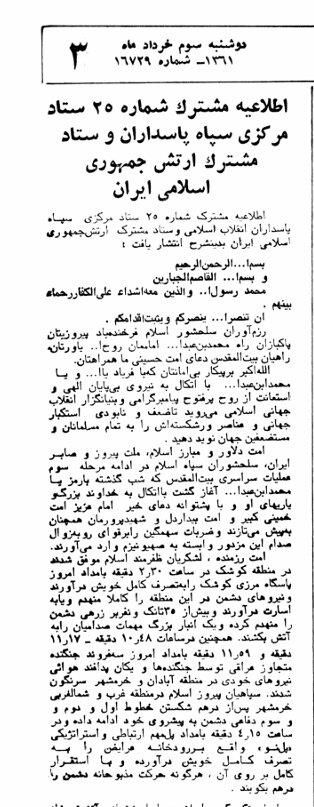 دوشنبه سوم خرداد ماه
۱۳۶۱ــ شماره ۱۶۷۲۹
۳
اطلاعیه مشترك شماره ۲۵ ستاد
مرکزی سپاه پاسداران و ستاد
مشترك ارتش جمهوری
اسلامی ایران
اطلاعیه مشترك شماره ۲۵ ستاد مرکزی سپاه
پاسداران انقلاب اسلامی و ستاد مشترك ارتش‌جمهوری
اسلامی ایران بدینشرح انتشار یافت :
بسم‌ا... الرحمن‌الرحیم
و بسم‌ا... القاصم‌الجبارین
محمد رسول‌ا... والذین معه‌اشداء علی‌الکفاررحماء
بینهم .
ان تنصرا... ینصرکم ویثبت‌اقدامکم .
رزم‌آوران سلحشور اسلام فرخنده‌باد پیروزیتان
پاکبازان راه محمدبن‌عبدا... امامتان روح‌ا... یاورتان،
راهیان بیت‌المقدس دعای امت حسینی ما همراهتان.
الله‌اکبر برپیکار بی‌امانتان که‌با فریاد یاا... و یا
محمدابن‌عبدا... با اتکال به نیروی بی‌پایان الهی و
استعانت از روح پرفتوح پیامبرگرامی وبنیانگزار انقلاب
جهانی اسلامی می‌روید تاضعف و نابودی استکبار
جهانی و عناصر ورشکسته‌اش را به تمام مسلمانان و
مستضعفین جهان نوید دهید .
امت دلاور و مبارز اسلام، ملت پیروز و صابر
ایران، سلحشوران سپاه اسلام در ادامه مرحله سوم
عملیات سراسری بیت‌المقدس که شب گذشته بارمز یا
محمدابن‌عبدا... آغاز گشت باتکال به خداوند بزرگ‌و
یاریهای او و با پشتوانه دعای خیر امام عزیز امت
خمینی کبیر و امت بیداردل و شهیدپرورمان همچنان
به‌پیش می‌تازند وضربات سهمگین رابرقوای روبه‌زوال
صدام این مزدور وابسته به صهیونیزم وارد می‌آورند.
امت رزمنده ، لشکریان ظفرمند اسلام موفق شدند
در منطقه کوشک در ساعت ۲ر۳۰ دقیقه بامداد امروز
پاسگاه مرزی کوشک رابه‌تصرف کامل خویش درآورند
و نیروهای دشمن در این منطقه را کاملا منهدم ویابه
اسارت درآورند وبیش‌از ۳۵تانک ونفربر زرهی دشمن
را منهدم کرده ویک انبار بزرگ مهمات صدامیان رابه
آتش بکشند. همچنین درساعات ۱۰ر۴۸ دقیقه ــ ۱۱ر۱۷
دقیقه و ۱۱ر۵۹ دقیقه بامداد امروز سه‌فروند جنگنده
متجاوز عراقی توسط جنگنده‌ها و یکان پدافند هوائی
نیروهای خودی در منطقه آبادان و خرمشهر سرنگون
شدند. سپاهیان پیروز اسلام درمنطقه غرب و شمالغربی
خرمشهر پس‌از درهم شکستن خطوط اول و دوم و
و سوم دفاعی دشمن به پیشروی خود ادامه داده و در
ساعت ۴ر۱۵ دقیقه بامداد پل‌مهم ارتباطی و استراتژیکی
«پل‌نو» واقع بررودخانه عرایض را به
تصرف کامل خویش درآورده و با استقرار
کامل بر روی آن ، هرگونه حرکت مذبوحانه دشمن را
درهم بکوبند .